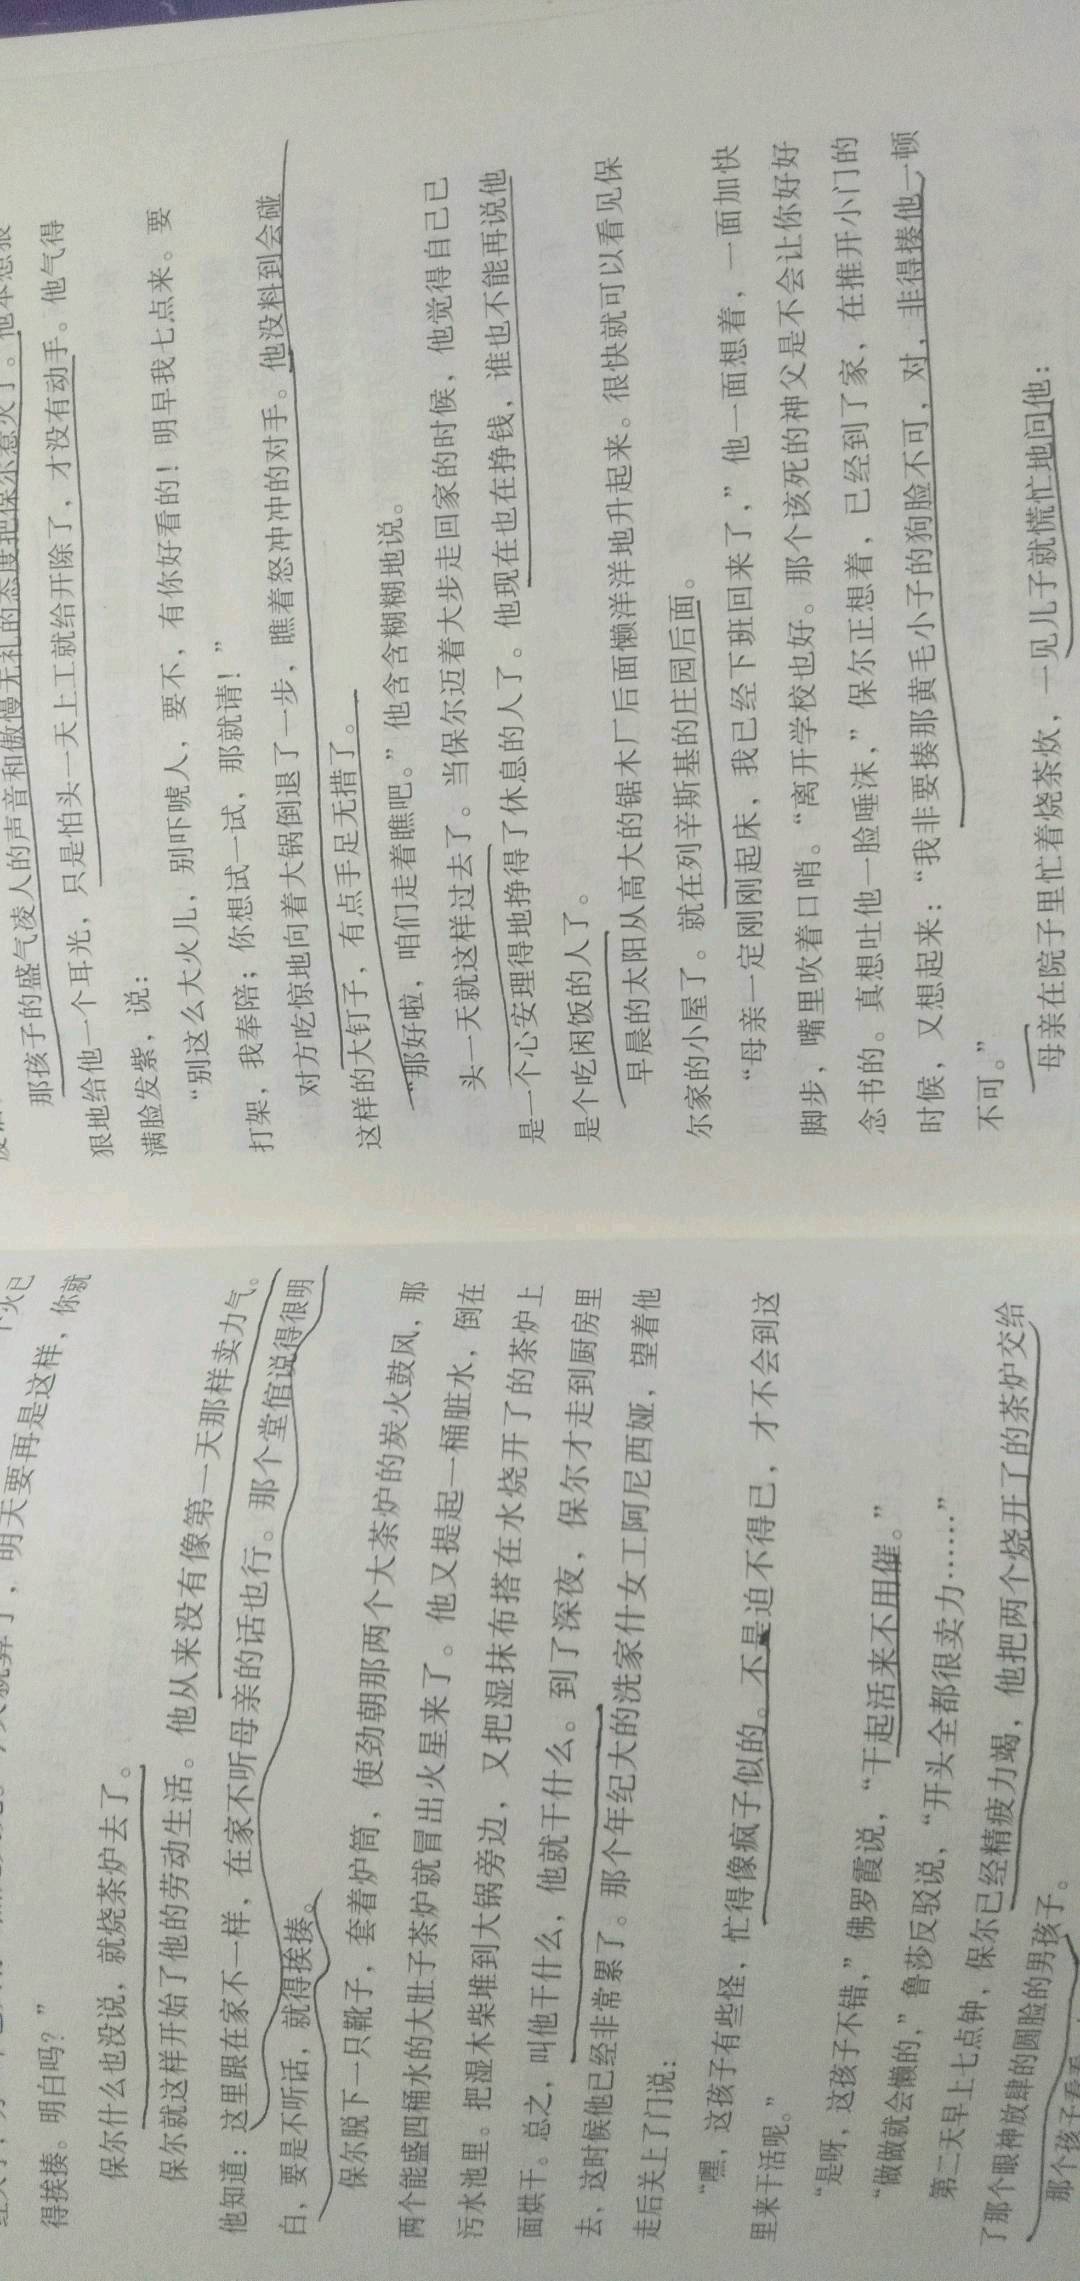 明天要再是这样，你就
得挨揍。明白吗？”
保尔什么也没说，就烧茶炉去了。
保尔就这样开始了他的劳动生活。他从来没有像第一天那样卖力气。
他知道：这里跟在家不一样，在家不听母亲的话也行。那个堂倌说得很明
白，要是不听话，就得挨揍。
保尔脱下一只靴子，套着炉筒，使劲朝那两个大茶炉的炭火鼓风，那
两个能盛四桶水的大肚子茶炉就冒出火星来了。他又提起一桶脏水，倒在
污水池里。把湿木柴堆到大锅旁边，又把湿抹布搭在水烧开了的茶炉上
面烘干。总之，叫他干什么，他就干什么。到了深夜，保尔才走到厨房里
去，这时候他已经非常累了。那个年纪大的洗家什女工阿尼西娅，望着他
走后关上了门说：
“嘿，这孩子有些怪，忙得像疯子似的。不是迫不得已，才不会到这
里来干活呢。”
“是呀，这孩子不错，”佛罗霞说，“干起活来不用催。”
“做做就会懒的，”鲁莎反驳说，“开头全都很卖力……”
第二天早上七点钟，保尔已经精疲力竭，他把两个烧开了的茶炉交给
了那个眼神放肆的圆脸的男孩子。
那个孩子看看
那孩子的盛气凌人的声音和傲慢无礼的态度把保尔惹火了。他本想狠
狠地给他一个耳光，只是怕头一天上工就给开除了，才没有动手。他气得
满脸发紫，说：
“别这么大火儿，别吓唬人，要不，有你好看的！明早我七点来。要
打架，我奉陪；你想试一试，那就请！”
对方吃惊地向着大锅倒退了一步，瞧着怒冲冲的对手。他没料到会碰
这样的大钉子，有点手足无措了。
“那好啦，咱们走着瞧吧。”他含含糊糊地说。
头一天就这样过去了。当保尔迈着大步走回家的时候，他觉得自己已
是一个心安理得地挣得了休息的人了。他现在也在挣钱，谁也不能再说他
是个吃闲饭的人了。
早晨的太阳从高大的锯木厂后面懒洋洋地升起来。很快就可以看见保
尔家的小屋了。就在列辛斯基的庄园后面。
“母亲一定刚刚起床，我已经下班回来了，”他一面想着，一面加快
脚步，嘴里吹着口哨。“离开学校也好。那个该死的神父是不会让你好好
念书的。真想吐他一脸唾沫，”保尔正想着，已经到了家，在推开小门的
时候，又想起来：“我非要揍那黄毛小子的狗脸不可，对，非得揍他一顿
不可。”
母亲在院子里忙着烧茶炊，一见儿子就慌忙地问他：